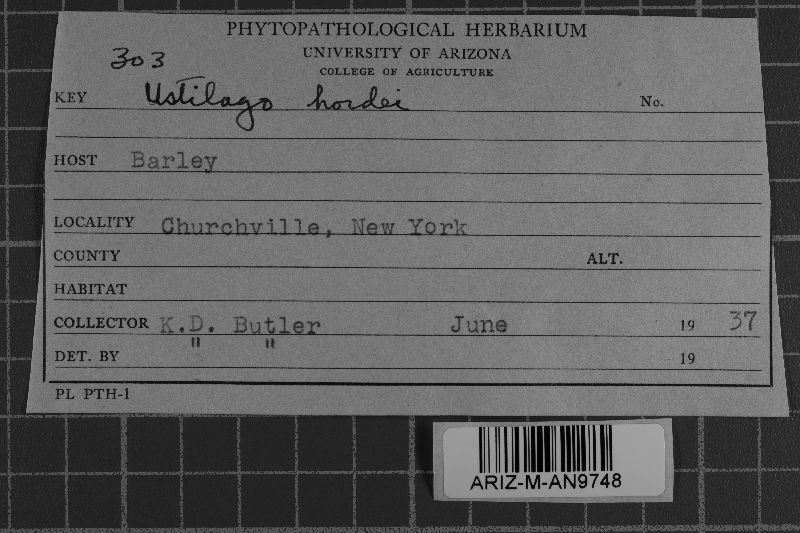 PHYTOPATHOLOGICAL HERBARIUM
UNIVERSITY OF ARIZONA
COLLEGE OF AGRICULTURE
303
KEY Ustilago hordei No.
HOST Barley
LOCALITY Churchville, New York
COUNTY ALT.
HABITAT
COLLECTOR K.D. Butler June 19 37
DET. BY " " 19
PL PTH-1
ARIZ-M-AN9748